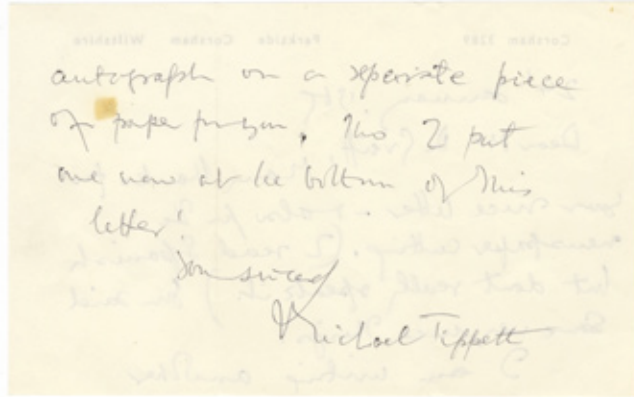 autograph on a separate piece
of paper for you, tho I put
one now at the bottom of this
letter!
Yours sincerely
Michael Tippett